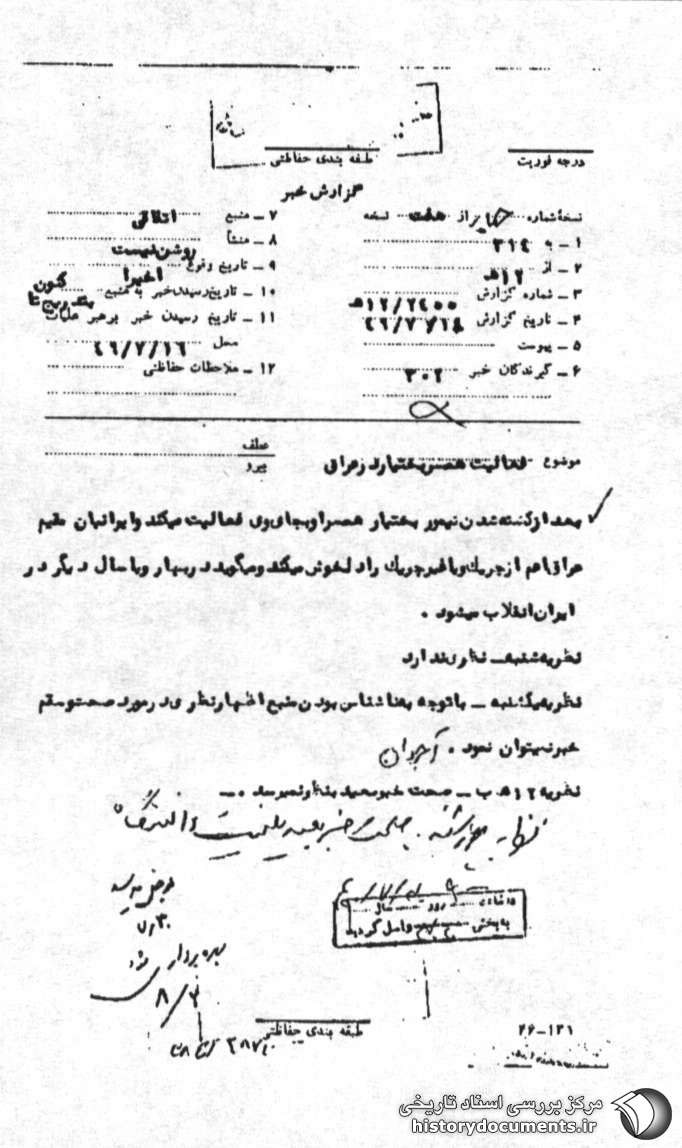 درجه فوریت
طبقه بندی حفاظتی
گزارش خبر
نسخهٔ شماره از هفت نسخه
۱ ـ به ۳۱۴
۲ ـ از ۱۲ هـ
۳ ـ شماره گزارش ۱۲/۲۴۰۰ هـ
۴ ـ تاریخ گزارش
۵ ـ پیوست
۶ ـ گیرندگان خبر ۳۰۲
۷ ـ منبع اتفاقی
۸ ـ منشأ
۹ ـ تاریخ وقوع روشن نیست
۱۰ ـ تاریخ رسیدن خبر به منبع اخیرا
۱۱ ـ تاریخ رسیدن خبر برهبر عملیات
محل ۴۹/۷/۱۶
۱۲ ـ ملاحظات حفاظتی
موضوع فعالیت همسر بختیار در عراق
عطف
پیرو
بعد از کشته شدن تیمور بختیار همسر او بجای وی فعالیت میکند و ایرانیان مقیم
عراق اعم از چریک و یا غیر چریک را دلخوش میکند و میگوید در بهار و یا سال دیگر در
ایران انقلاب میشود .
نظریه شنبه ـ نظری ندارد
نظریه یکشنبه ـ با توجه به ناشناس بودن منبع اظهار نظری در مورد صحت و سقم
خبر نمیتوان نمود .
نظریه ۱۲ هـ ب ـ صحت خبر بعید بنظر نمیرسد . ـ
در ساعت روز سال
به بخش واصل گردید
بهره برداری شد
۸/۴
طبقه بندی حفاظتی
۲۶-۱۳۱
مرکز بررسی اسناد تاریخی
historydocuments.ir